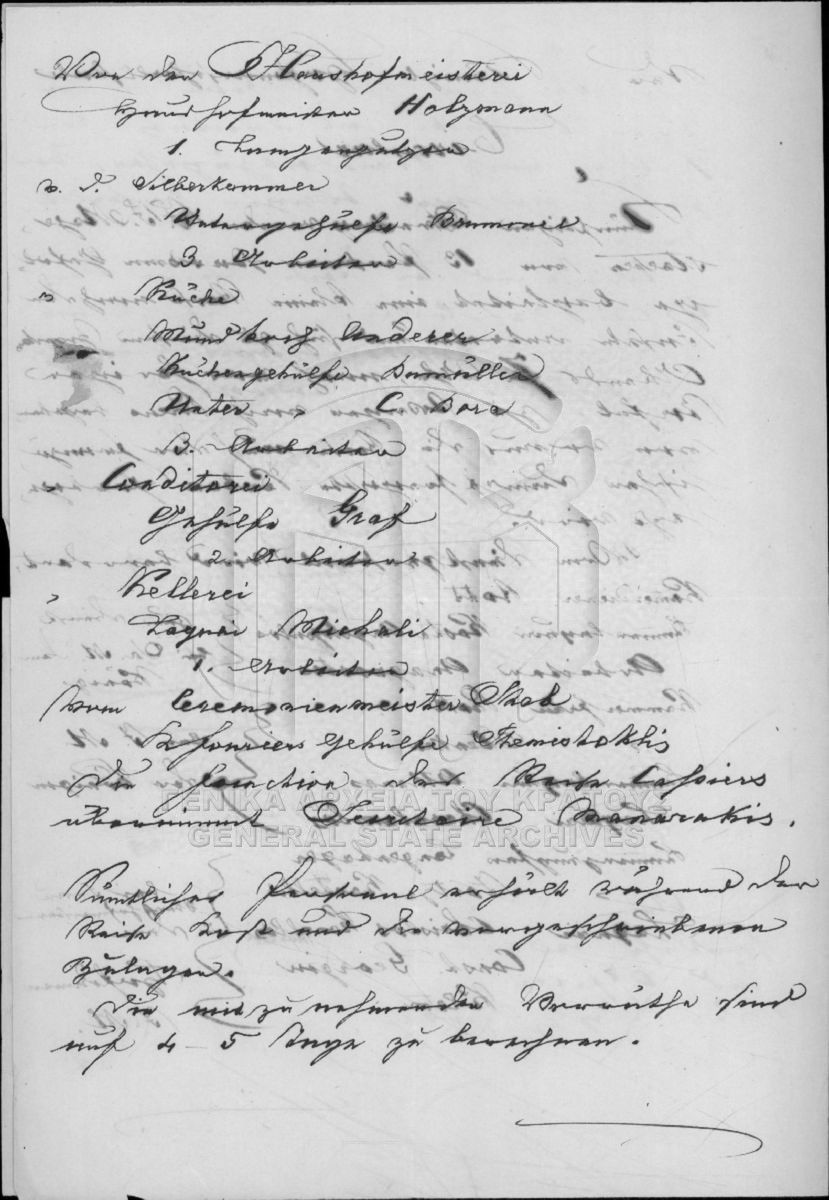 Von der Haushofmeisterei
Haushofmeister Holzmann
1. Lampenputzer
v. d. Silberkammer
Untergehülfe
3 Arbeiter
" Küche
Mundkoch Anderer
Küchengehülfe Damüller
Unter " C. Dore
3. Arbeiter
" Conditorei
Gehülfe Graf
2 Arbeiter
" Kellerei
Laquai Michali
1. Arbeiter
Vom Ceremonienmeister Stab
K. fouriers Gehülfe Themistoklis
Die Function des Reise Cassiers
übernimmt Secretaire Manarakis.
Sämtliches Personal erhält während der
Reise Kost und die vorgeschriebenen
Zulagen.
Die mitzunehmenden Vorräthe sind
auf 4 - 5 Tage zu berechnen.
ΓΕΝΙΚΑ ΑΡΧΕΙΑ ΤΟΥ ΚΡΑΤΟΥΣ
GENERAL STATE ARCHIVES